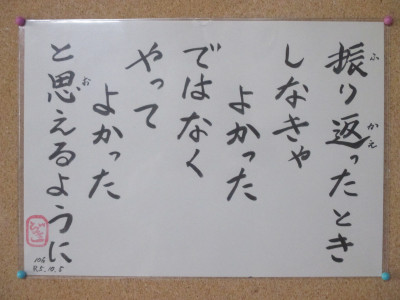 振り返ったとき
しなきゃ
よかった
ではなく
やって
よかった
と思えるように
ふ
かえ
おも
106
R5.10.5